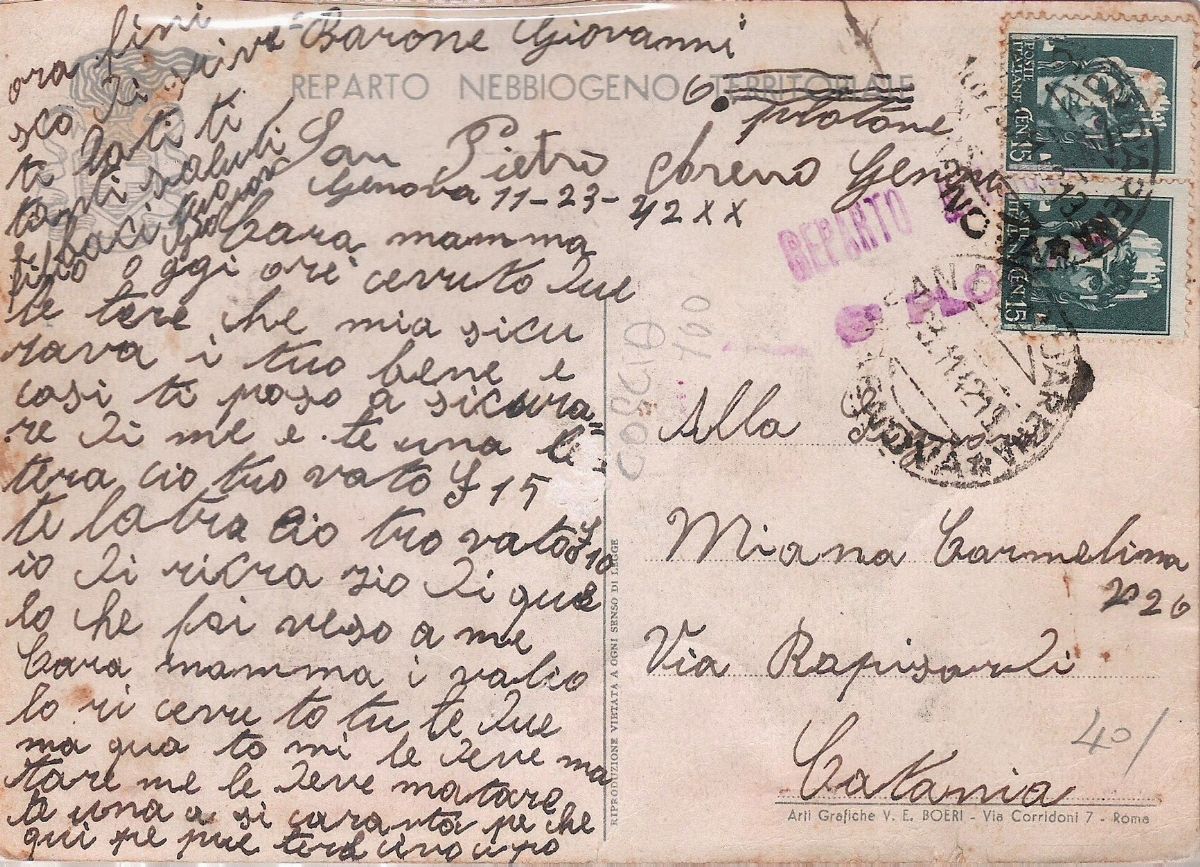 Barone Giovanni
REPARTO NEBBIOGENO TERRITORIALE
6. plotone
San Pietro Areno Genova
Genova 11-23-42 XX
Cara mamma
Oggi ore cevuto due
le tere che mia sicu
rava i tuo bene e
cosi ti poso a sicura=
re di me e te una le
tera cio tro vato £ 15
te latra cio tro vato £ 10
io di ricra zio di que
lo che fai veso a me
Cara mamma i valio
lo ri cevu to tu te due
ma qua to mi le deve ma
tare me le deve matare
te una a si carata pe che
qui pe
ora fini
sco di scrive
ti lati ti
tanti saluti
baci
Alla Signora
Miana Carmelina
Via Rapisardi
226
Catania
REPARTO
6° PLO
CORSIA
400
40/
POSTE ITALIANE CENT 15
CENT 15
SAN PIER D'ARENA
GENOVA
RIPRODUZIONE VIETATA A OGNI SENSO DI LEGGE
Arti Grafiche V. E. BOERI - Via Corridoni 7 - Roma